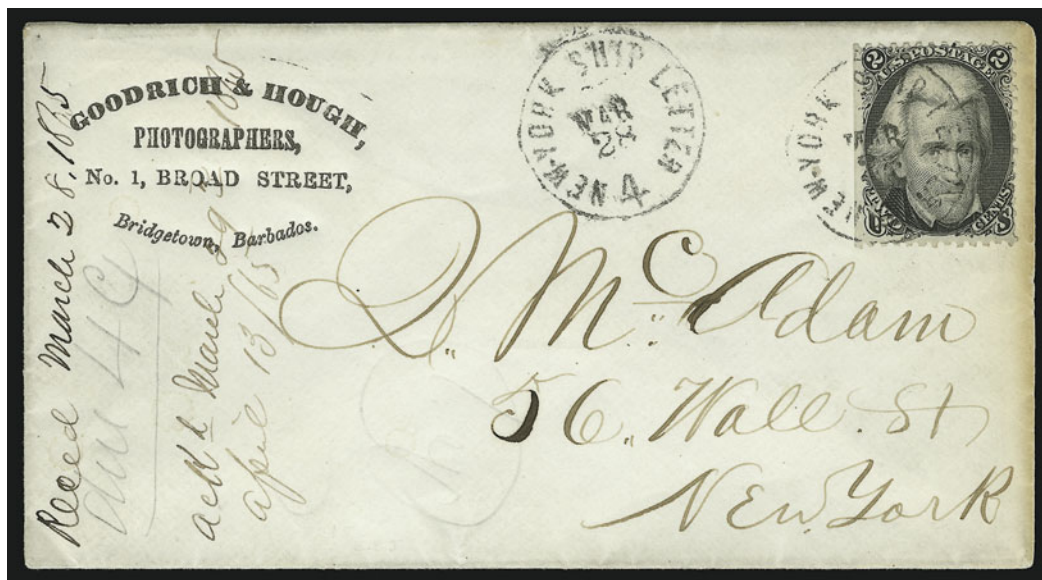 GOODRICH & HOUGH,
PHOTOGRAPHERS,
No. 1, BROAD STREET,
Bridgetown, Barbados.
NEW-YORK SHIP LETTER
MAR
28
4
NEW-YORK
2 U.S. POSTAGE 2
TWO CENTS
U S
D. McAdam
56. Wall. St
New York
Recd March 28, 1865
ackd March 29th 1865
april 13/65